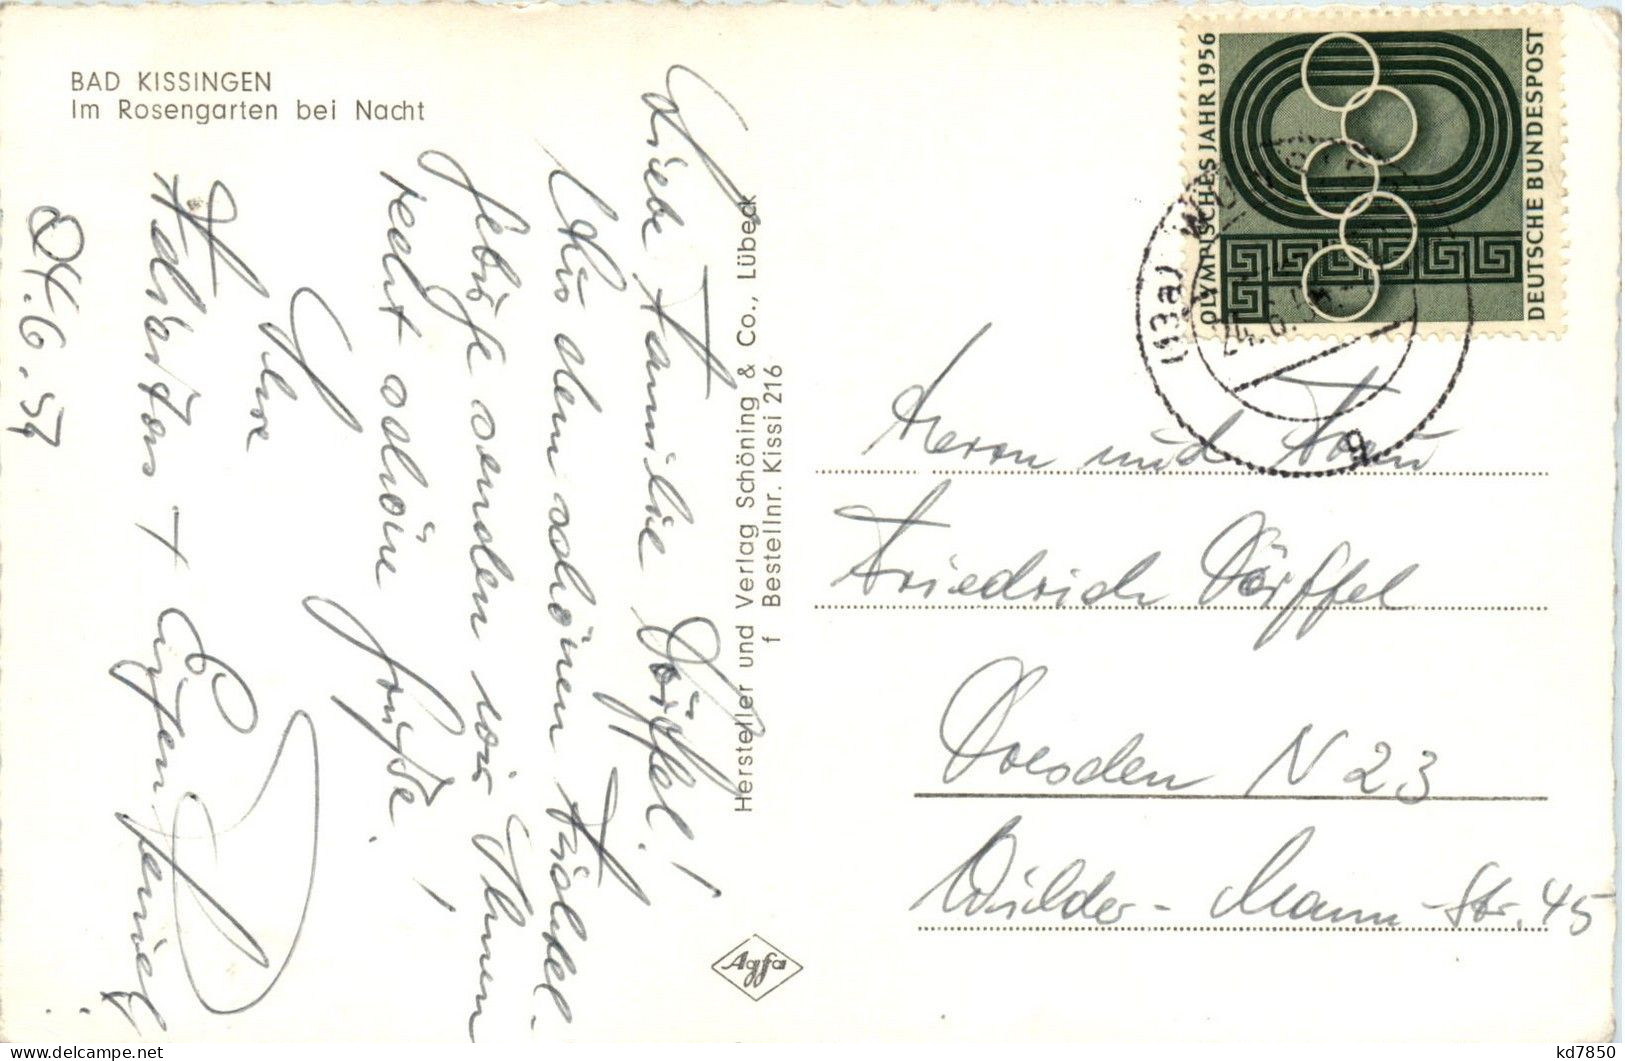 BAD KISSINGEN
Im Rosengarten bei Nacht
24.6.57
Liebe Familie Dörffel!
Aus dem schönen Fichtel-
gebirge senden wir Ihnen
recht schöne Grüße.
Ihre
Hersteller und Verlag Schöning & Co., Lübeck
f Bestellnr. Kissi 216
Agfa
OLYMPISCHES JAHR 1956
DEUTSCHE BUNDESPOST
(13a)
24.6.
g
Herrn und Frau
Friedrich Dörffel
Dresden N 23
Wilder-Mann-Str. 45
kd7850